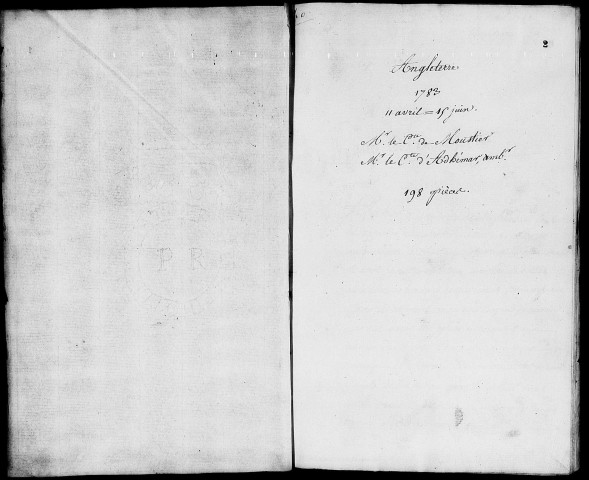 2
Angleterre
1783
11 avril = 15 juin.
Mr. le Cte. de Moustier
Mr. le Cte. d'Adhémar, ambr.
198 pièces.
P R G